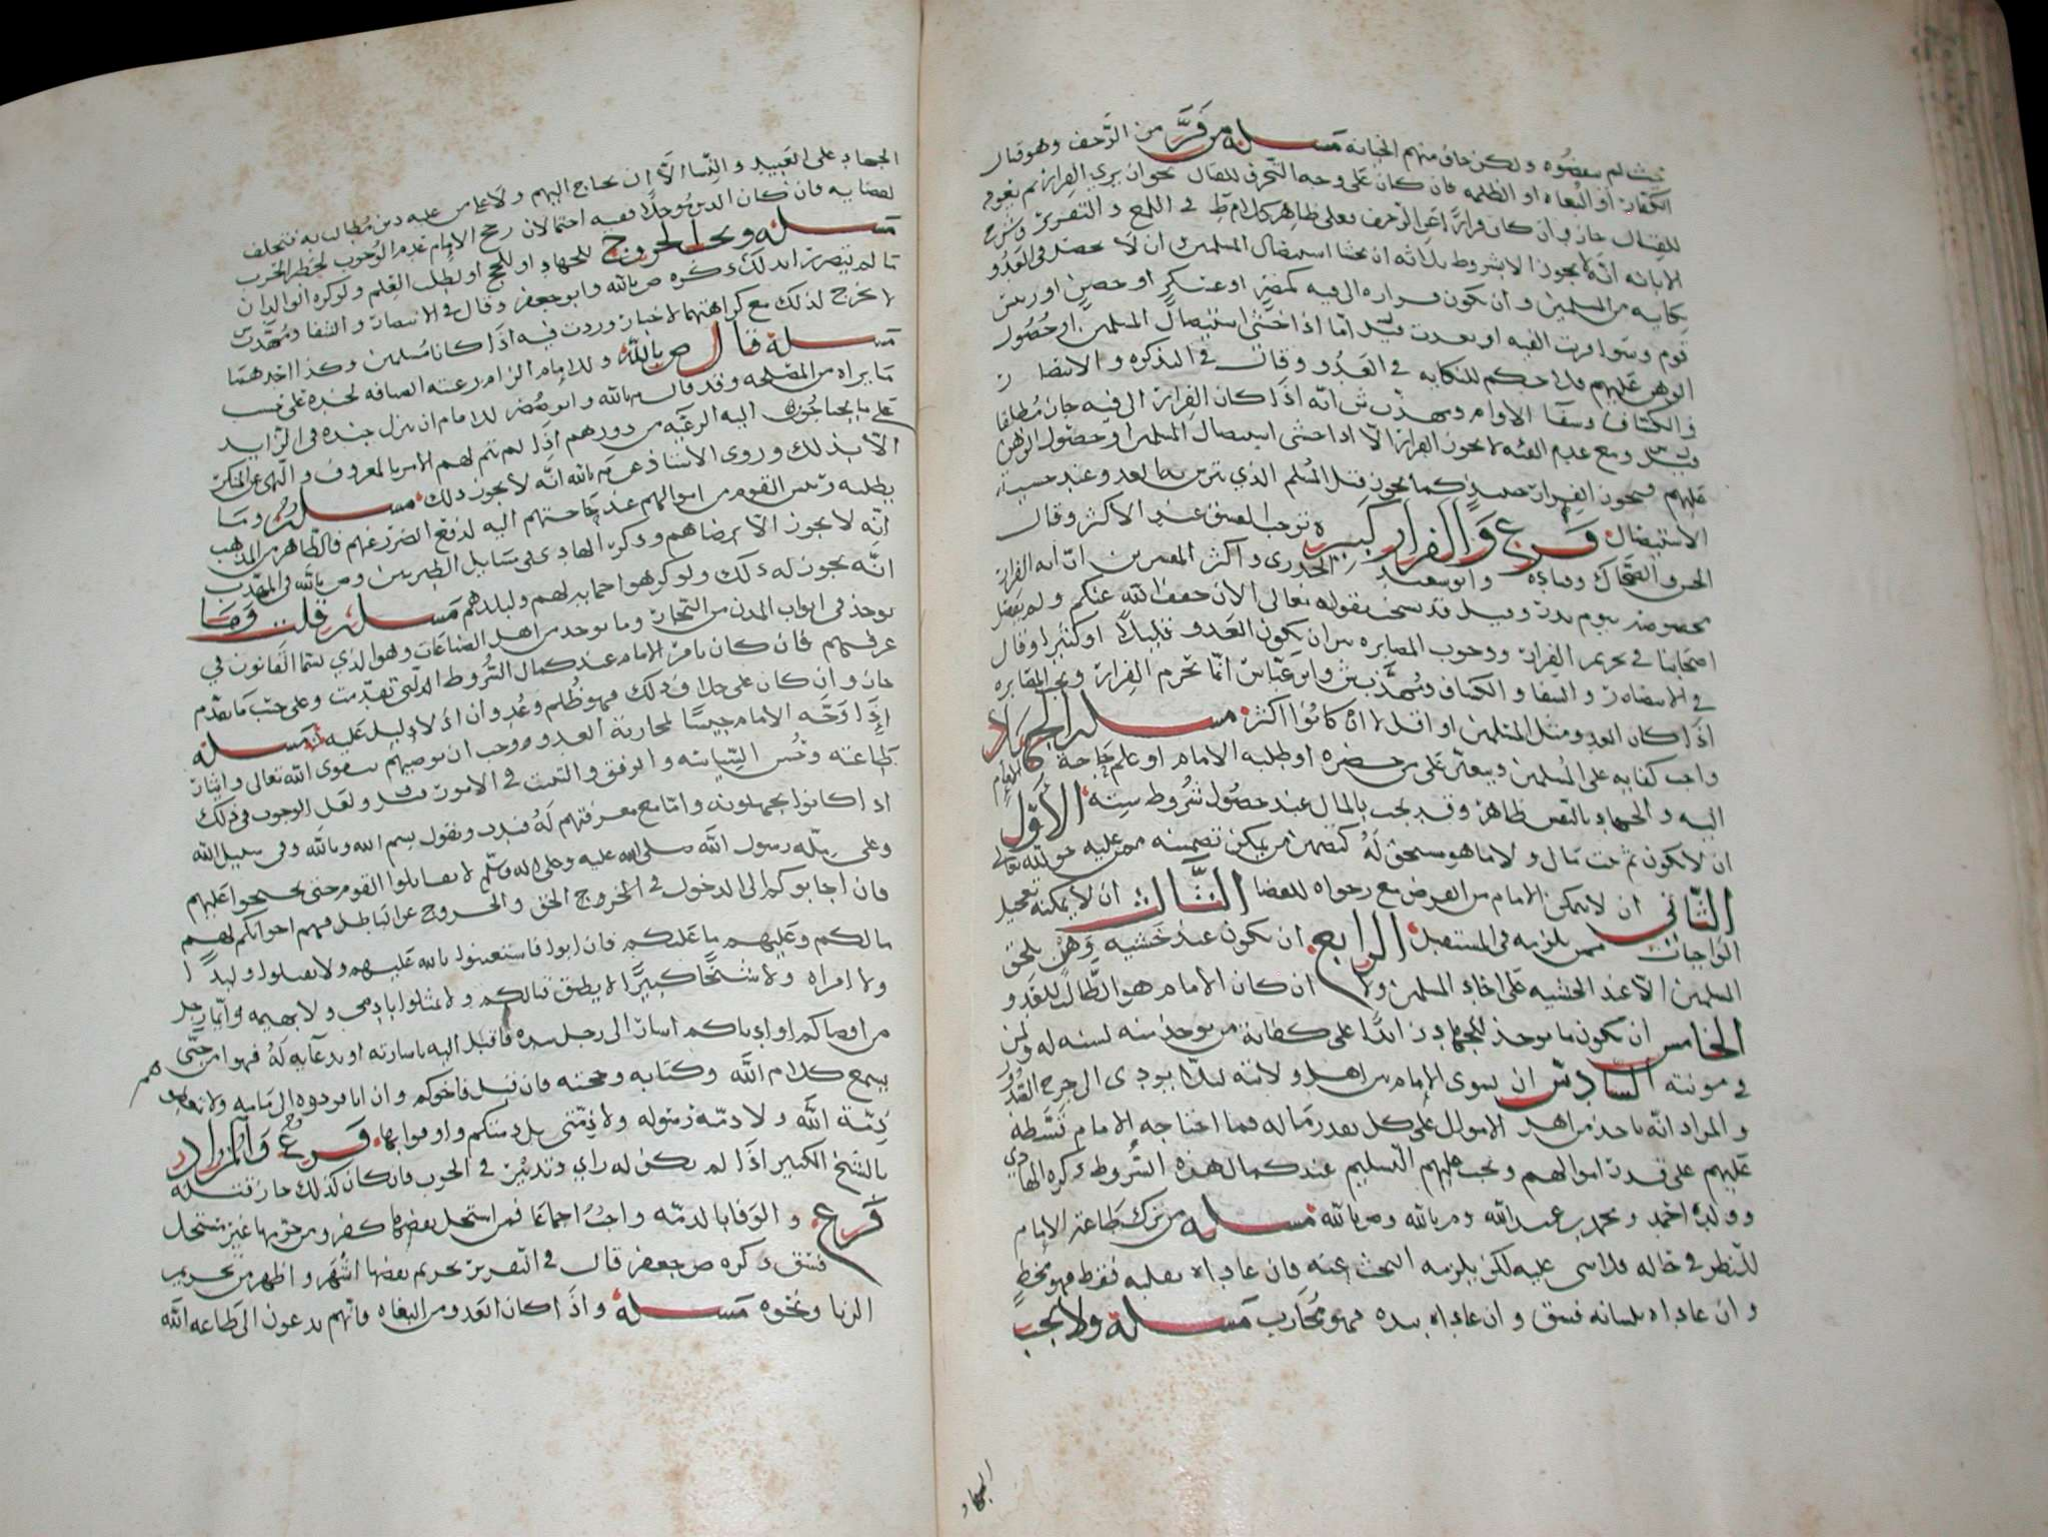 لم ينقضوه ولكن خاف منهم الخيانة مسلة من فرّ من الزحف وهو قتال
الكفار او البغاه او الظلمه فان كان على وجه التحرف للقتال نحو ان يري الفرار ثم يغير
للقتال جاز وان كان فرارا عن الزحف فعلى ظاهر كلام ط في اللمع والتقرير وشرح
الابانه انه لا يجوز الا بشروط ثلاثه ان يخشا استيصال المسلمين ان لا يحصل في العدو
نكايه من المسلمين وان يكون فراره الى فيه كمصر او عسكر او حصن او ريس
قوم وسوا قربت الفيه او بعدت قيل اما اذا خشي استيصال المسلمين او حصول
الوهن عليهم فلا حكم للنكايه في العدو وقال في التذكره والانتصار
والكشاف وشفا الاوام ومهذب ش انه اذا كان الفرار الى فيه جاز مطلقا
ومع عدم الفئه لا يجوز الفرار الا اذا خشي استيصال المسلمين او حصول الوهن
عليهم فيجوز الفرار حينيذ كما يجوز قتل المسلم الذي تترس به العدو عند خشية
الاستيصال فرع والفرار كبيره توجب الفسق عند الاكثر وقال
الحسن والضحاك وقتاده وابو سعيد الخدري واكثر المفسرين ان ايه الفرار
مخصوصه بيوم بدر وقيل قد نسخت بقوله تعالى الان خفف الله عنكم ولم يفصل
اصحابنا في تحريم الفرار ووجوب المصابره بين ان يكون العدو قليلا او كثيرا وقال
في الانتصار والشفا والكشاف ومهذب ش وابن عباس انما يحرم الفرار وتجب المصابره
اذا كان العدو مثل المسلمين او اقل لا ان كانوا اكثر مسلة الجهاد
واجب كفايه على المسلمين ويتعين على من حضره او طلبه الامام او علم حاجة الامام
اليه والجهاد بالنفس ظاهر وقد يجب بالمال عند حصول شروط سته الاول
ان لا يكون ثم بيت مال ولا ما هو مستحق له كتضمين من يمكن تضمينه ممن عليه حق لله تعالى
الثاني ان لا يتمكن الامام من القرض مع رجواه للقضا الثالث ان لا يمكنه تعجيل
الواجبات ممن يلزمه في المستقبل الرابع ان يكون عند خشيه وهن يلحق
المسلمين الا عند الخشيه على المسلمين ولا ان كان الامام هو الطالب للعدو
الخامس ان يكون ما يوخذ للجهاد زايدا على كفاية من يوخذ منه لسنه له ولمن
في مونته السادس ان يسوى الامام بين اهل ولايته ليلا يودى الى حرج الصدور
والمراد انه ياخذ من اهل الاموال على كل بقدر ماله فما احتاجه الامام قسطه
عليهم على قدر اموالهم ويجب عليهم التسليم عند كمال هذه الشروط ذكره الهادي
وولده احمد ومحمد بن عبدالله وم بالله وص بالله مسلة من ترك طاعة الامام
للنظر في حاله فلا شي عليه لكن يلزمه البحث عنه فان عاداه بقلبه فقط فهو مخطٍ
وان عاداه بلسانه فسق وان عاداه بيده فهو محارب مسلة ولا يجب
الجهاد
الجهاد على العبيد والنسا الا ان يحتاج اليهم ولا على من عليه دين مطالب به فتخلف
لقضايه فان كان الدين موجلا ففيه احتمالان رجح الامام عدم الوجوب لخطر الحرب
مسلة ويجب الخروج للجهاد او للحج او لطلب العلم ولو كره الوالدان
ما لم يتضررا بذلك ذكره ص بالله وابو جعفر وقال في الانتصار والشفا ومهذب ش
لا يخرج لذلك مع كراهتهما لاخبار وردت فيه اذا كانا مسلمين وكذا احدهما
مسلة قال ص بالله وللامام الزام رعيته الضيافه لجنده على حسب
ما يراه من المصلحه وقد قال م بالله وابو مضر للامام ان ينزل جنده في الزايد
على ما يحتاجون اليه الرعيه من دورهم اذا لم يتم لهم الامر بالمعروف والنهي عن المنكر
الا بذلك وروى الاستاذ عن م بالله انه لا يجوز ذلك مسلة وما
يطلبه ريس القوم من اموالهم عند حاجتهم اليه لدفع الضرر عنهم فالظاهر من المذهب
انه لا يجوز الا برضاهم وذكر الهادي في مسايل الطبريين وص بالله في المهذب
انه يجوز له ذلك ولو كرهوا حمايه لهم ولبلدهم مسلة قلت وما
يوخذ في ابواب المدن من التجار وما يوخذ من اهل الصناعات وهو الذي يسما القانون في
عرفهم فان كان بامر الامام عند كمال الشروط التي تقدمت وعلى حسب ما تقدم
جاز وان كان على خلاف ذلك فهو ظلم وعدوان اذ لا دليل عليه مسلة
اذا وجه الامام جيشا لمحاربة العدو وجب ان يوصيهم بتقوى الله تعالى وايثار
طاعته وحسن السياسه والرفق والتثبت في الامور ولعل الوجوب في ذلك
اذا كانوا يجهلونه واما مع معرفتهم له فندب ويقول بسم الله وبالله وفي سبيل الله
وعلى مله رسول الله صلى الله عليه وعلى اله وسلم لا تقاتلوا القوم حتى تحتجوا عليهم
فان اجابوكم الى الدخول في الحق والخروج عن الباطل فهم اخوانكم لهم
ما لكم وعليهم ما عليكم فان ابوا فاستعينوا بالله عليهم ولا تقتلوا وليدا
ولا امراه ولا شيخا كبيرا لا يطيق قتالكم ولا تمثلوا بادمي ولا بهيمه وايما رجل
من اقصاكم او ادناكم اشار الى رجل بيده فاقبل اليه باشارته او بدعايه له فهو امن حتى
يسمع كلام الله وكتابه وحجته فان قبل فاخوكم وان ابا فردوه الى مامنه ولا تعطوهم
ذمة الله ولا ذمه رسوله ولا ذمتي بل ذمتكم واوفوا بها فرع والمراد
بالشيخ الكبير اذا لم يكن له راي وتدبير في الحرب فان كان كذلك جاز قتله
فرع والوفا بالذمه واجب اجماعا فمن استحل نقضها كفر ومن خونها غير مستحل
فسق ذكره ص جعفر قال في التقرير تحريم نقضها اشهر واظهر من تحريم
الزنا ونحوه مسلة واذا كان العدو من البغاه فانهم يدعون الى طاعه الله